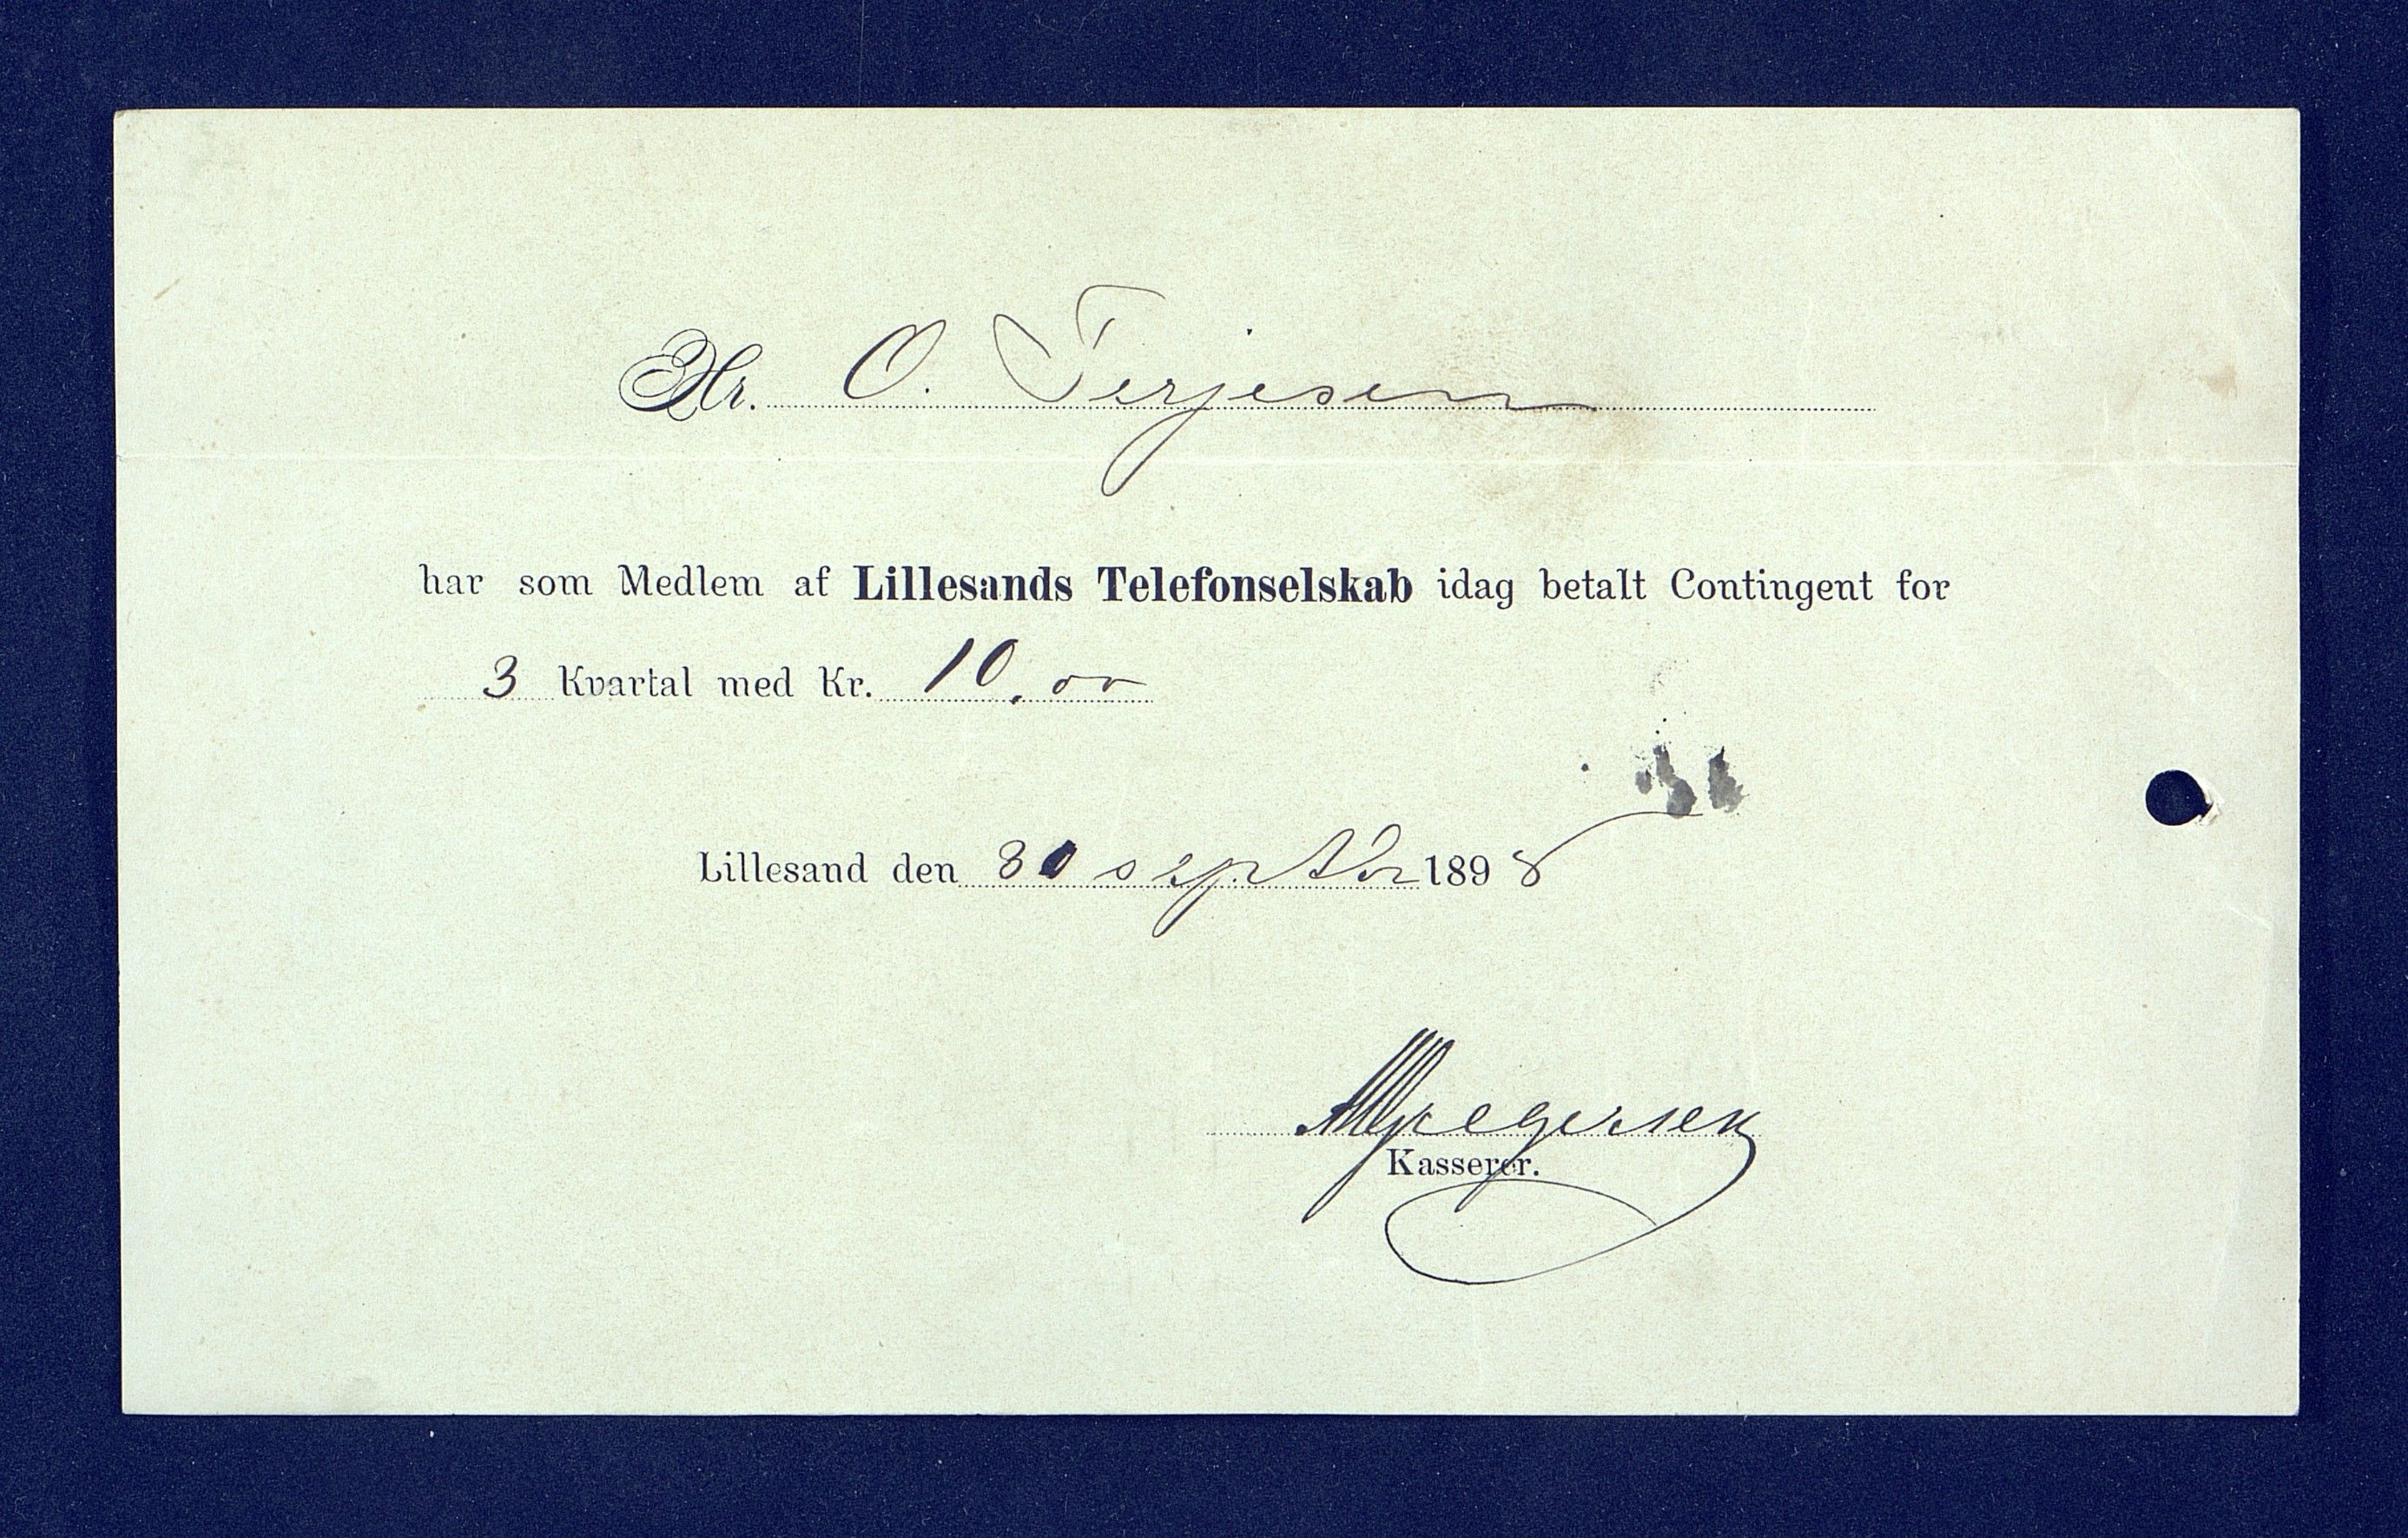 Hr. O. Terjesen
har som Medlem af Lillesands Telefonselskab idag betalt Contingent for
3 Kvartal med Kr. 10.00
Lillesand den 30 septbr 1898
Kasserer.